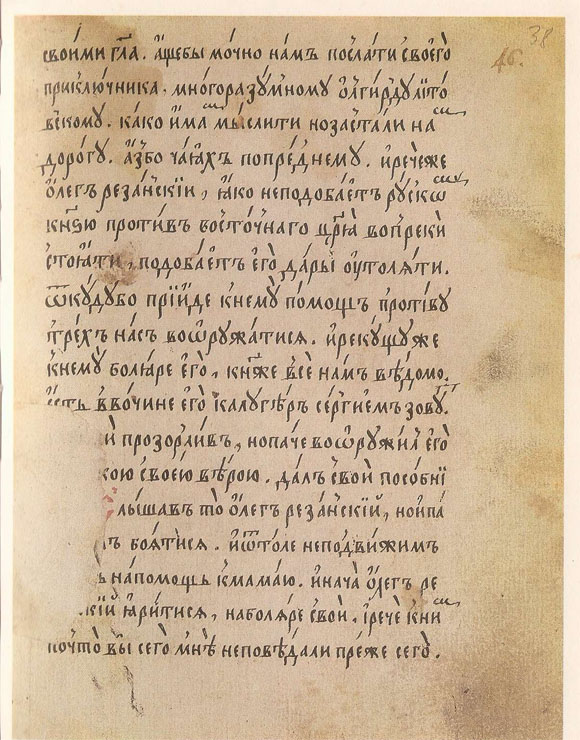 38
46.
своими гл҃а. а́щебы мо́чно на́мъ посла́ти своего̀
приклю́чника. многоразу́мному ѻ҆лги́рду ли́то
вскому. ка́ко и҆́ма мы́слити но заста́ли на
доро́гу. а҆́зъбо ча́ѧхъ попре́днему. и҆рече́же
ѻ҆ле́гъ реза́нскїи, ꙗ҆́ко неподоба́етъ ру́скѡ
кн҃зю проти́въ восто́чнаго цр҃ѧ̀ вопрекѝ
стоѧ́ти, подоба́етъ его̀ да́ры ѹ҆толѧ́ти.
ѿкꙋ́дꙋбо прїи́де кнемꙋ̀ по́мощъ проти́вꙋ
тре́хъ на́съ воѡрꙋжа́тисѧ. и҆рекꙋ́щꙋже
кнемꙋ̀ болѧ́ре его̀, кн҃же всѐ на́мъ вѣ́домо.
е҆́сть ввочине его̀ калуге́ръ се́ргиемъ зовꙋ́.
и҆ прозорли́въ, но па́че воѡрꙋжи́л его̀
кою своею вѣ́рою. да́лъ свои̇ посо́бнї
лы́шавъ то̀ ѻ҆ле́гъ реза́нскїй, но и҆па́
ъ боѧ́тисѧ. и҆ѿто́ле неподви́жимъ
ь на́помощь кмама́ю. и҆нача̀ ѻ҆ле́гъ ре
кїй ꙗ҆ри́тисѧ, на болѧ́ре свои̇. і҆речѐ кни
почто̀ вы̀ сего̀ мнѣ̀ неповѣ́дали пре́же сего̀.